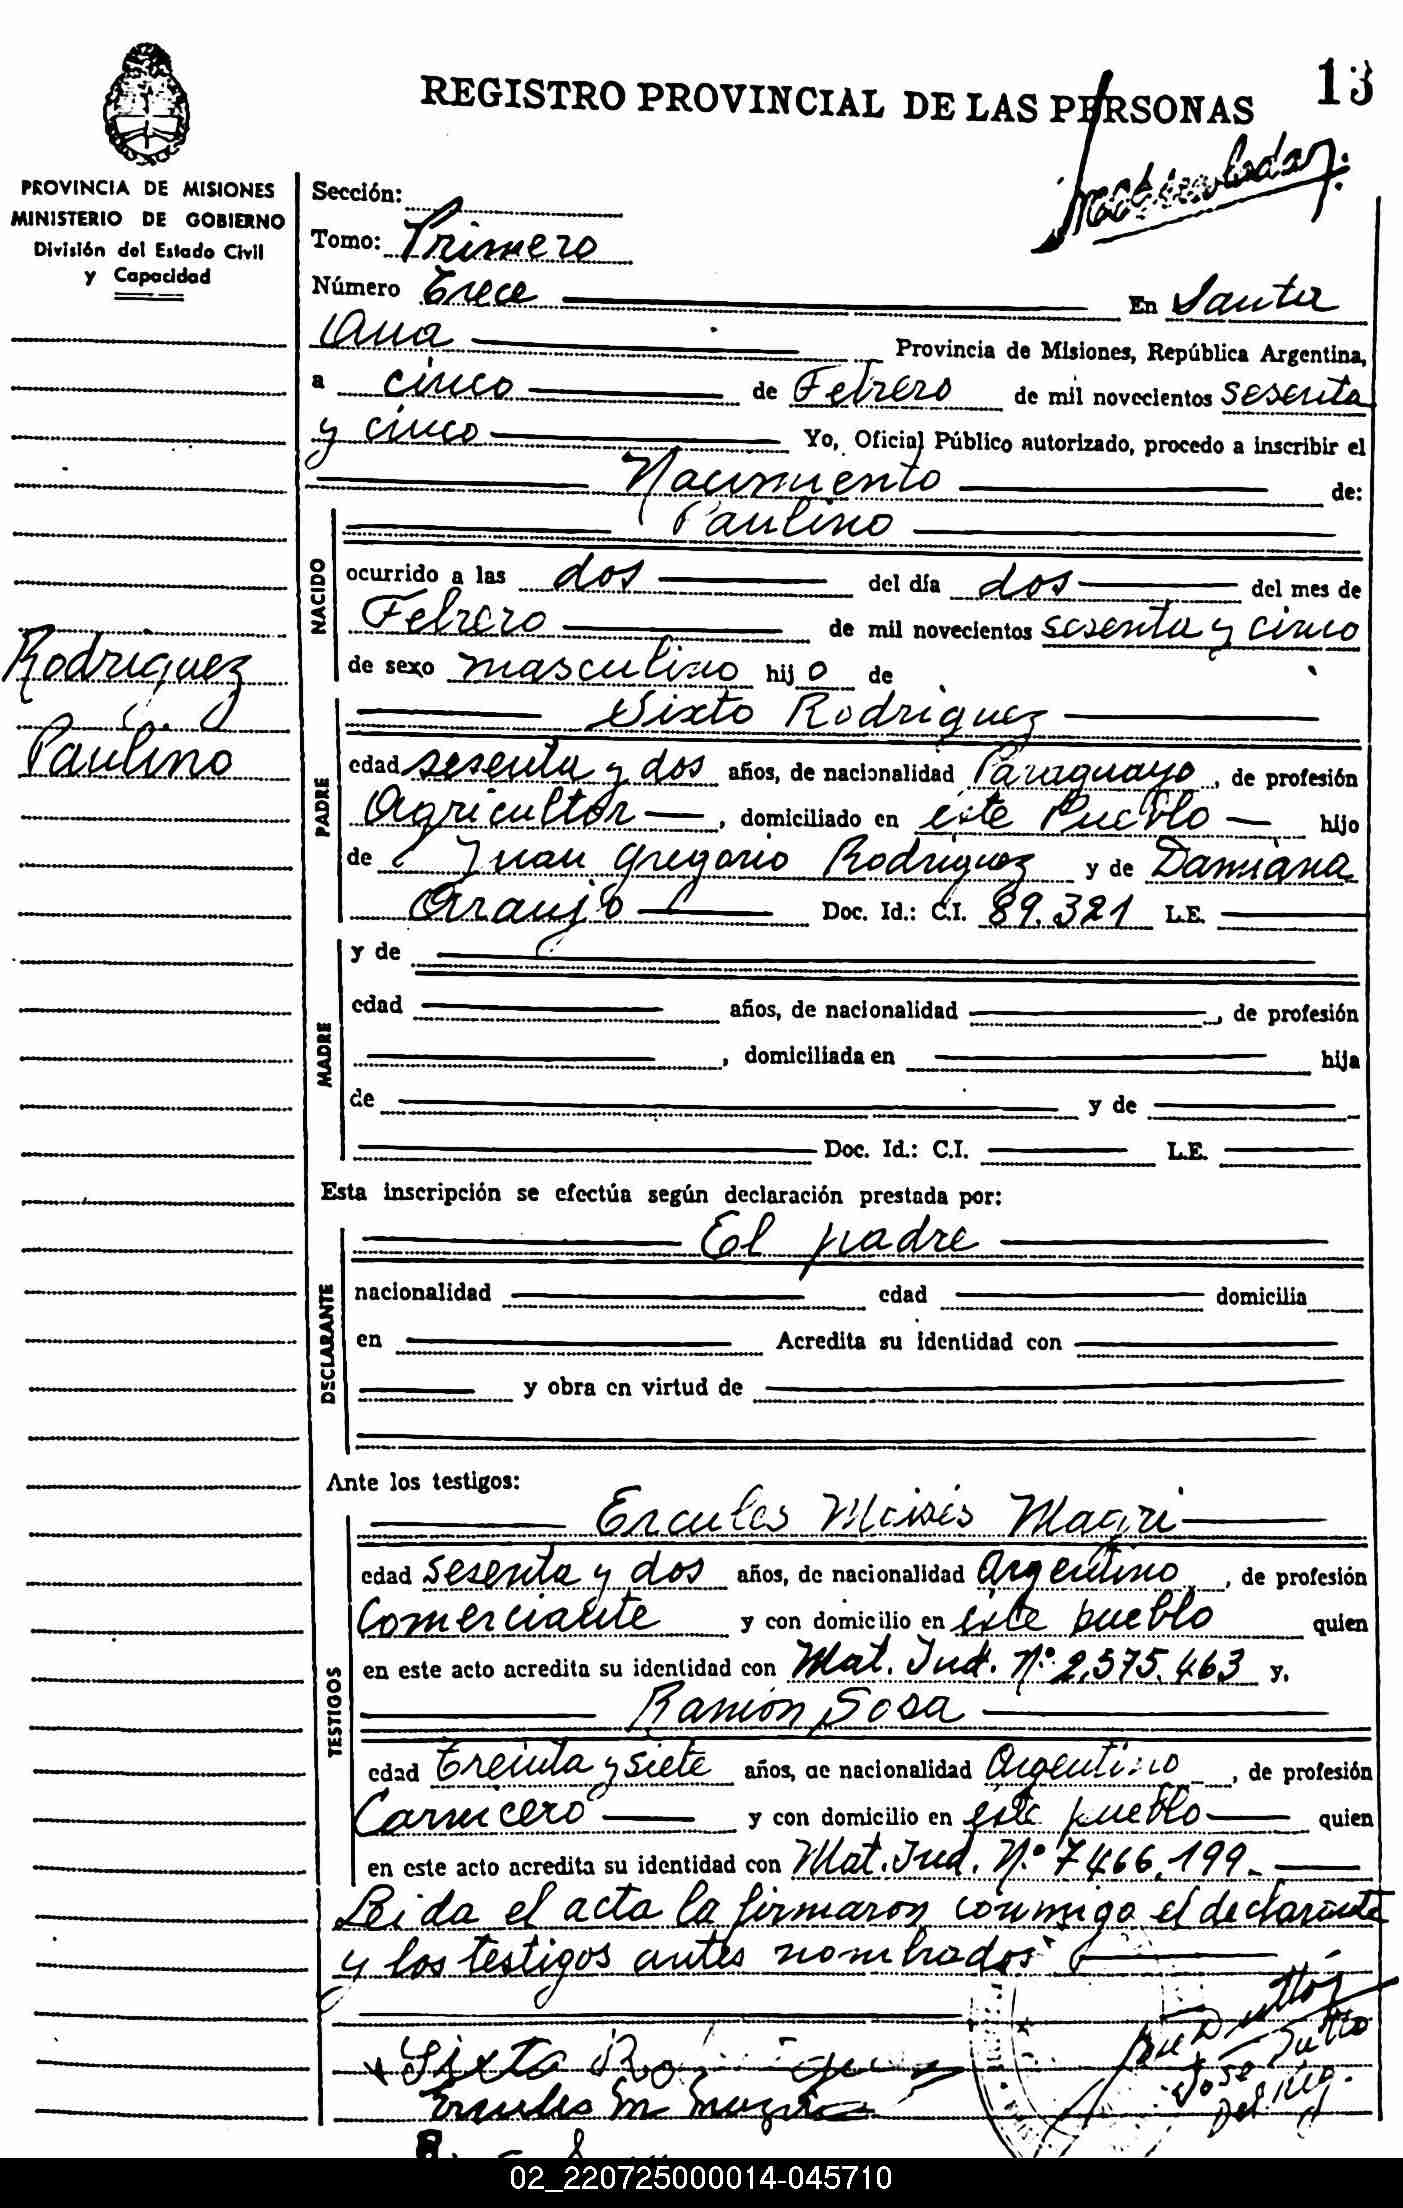 13
REGISTRO PROVINCIAL DE LAS PERSONAS
PROVINCIA DE MISIONES
MINISTERIO DE GOBIERNO
División del Estado Civil
y Capacidad
Rodriguez
Paulino
Sección:
Tomo: Primero
Número Trece En Santa
Ana Provincia de Misiones, República Argentina,
a cinco de Febrero de mil novecientos sesenta
y cinco Yo, Oficial Público autorizado, procedo a inscribir el
Nacimiento de:
NACIDO
Paulino
ocurrido a las dos del día dos del mes de
Febrero de mil novecientos sesenta y cinco
de sexo masculino hijo de
PADRE
Sixto Rodriguez
edad sesenta y dos años, de nacionalidad Paraguayo, de profesión
Agricultor, domiciliado en éste Pueblo hijo
de Juan Gregorio Rodriguez y de Damiana
Araujo Doc. Id.: C.I. 89.321 L.E.
MADRE
y de
edad años, de nacionalidad , de profesión
, domiciliada en hija
de y de
Doc. Id.: C.I. L.E.
Esta inscripción se efectúa según declaración prestada por:
DECLARANTE
El padre
nacionalidad edad domicilia
en Acredita su identidad con
y obra en virtud de
Ante los testigos:
TESTIGOS
Ercules Moisés Magri
edad sesenta y dos años, de nacionalidad Argentino, de profesión
Comerciante y con domicilio en éste pueblo quien
en este acto acredita su identidad con Mat. Ind. Nº 2.575.463 y.
Ramón Sosa
edad Treinta y siete años, de nacionalidad Argentino, de profesión
Carnicero y con domicilio en éste pueblo quien
en este acto acredita su identidad con Mat. Ind. Nº 7466.199.
Leida el acta la firmaron conmigo el declarante
y los testigos antes nombrados
Sixto Rodriguez
Ercules M
José
Del Reg.
02_220725000014-045710